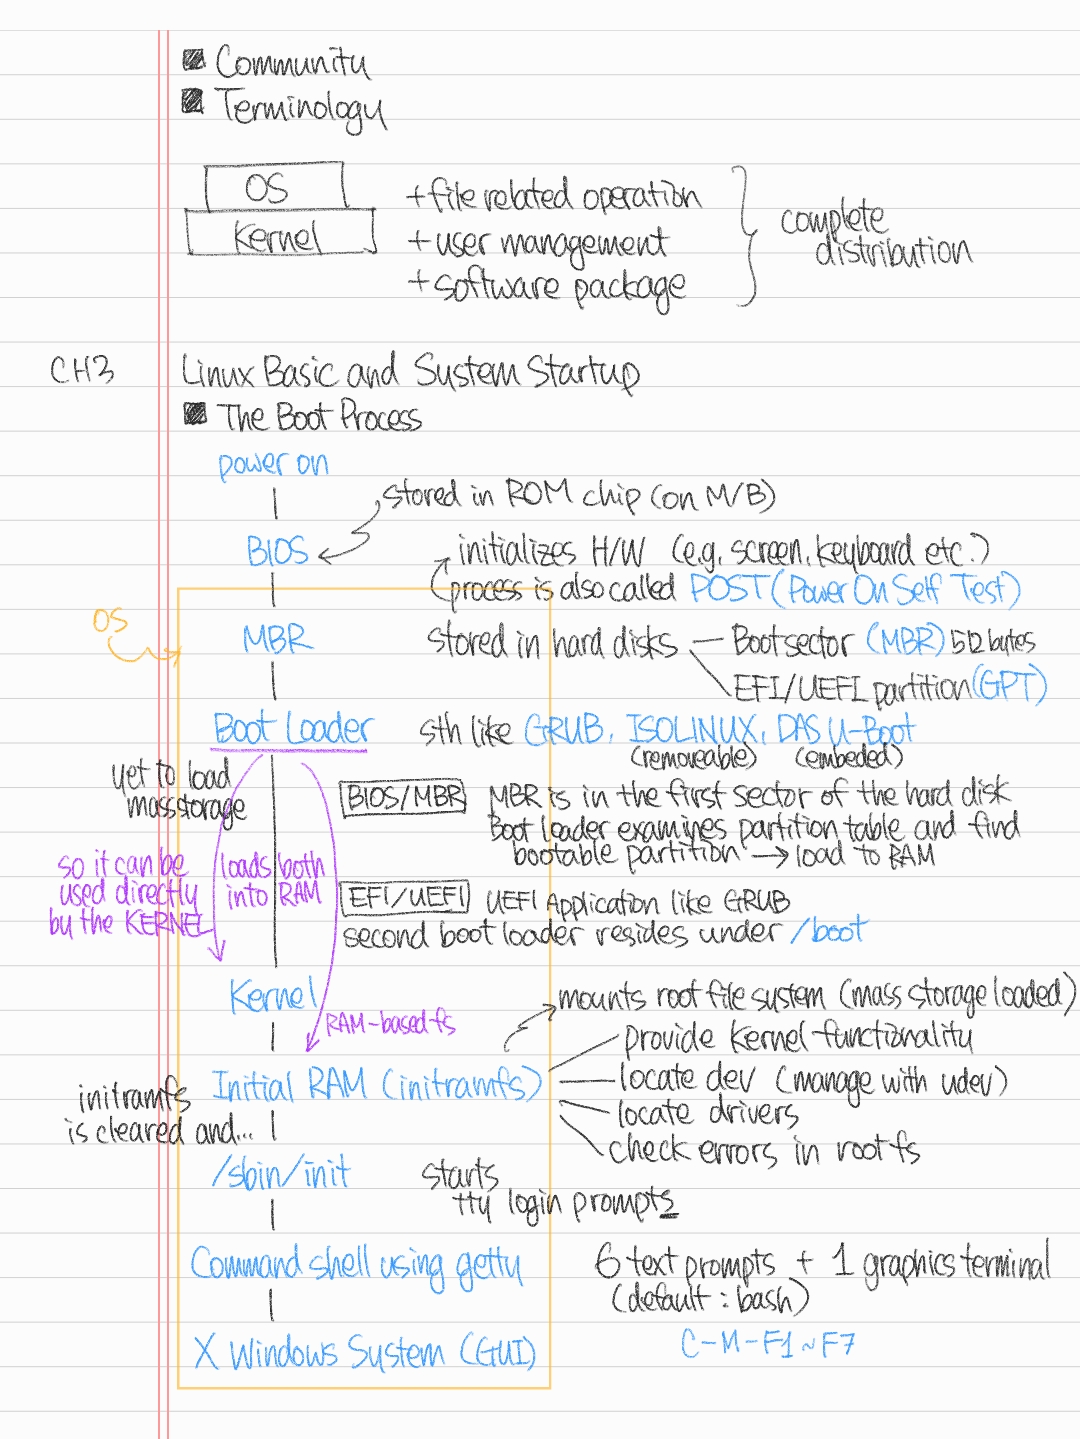 ■ Community
■ Terminology
OS
Kernel
+ file related operation
+ user management
+ software package
complete
distribution
CH3
Linux Basic and System Startup
■ The Boot Process
power on
stored in ROM chip (on M/B)
BIOS
initializes H/W (e.g. screen, keyboard etc.)
process is also called POST (Power On Self Test)
OS
MBR
stored in hard disks
Boot sector (MBR) 512 bytes
EFI/UEFI partition (GPT)
Boot Loader
sth like GRUB, ISOLINUX, DAS U-Boot
(removeable) (embeded)
yet to load
mass storage
BIOS/MBR
MBR is in the first sector of the hard disk
Boot loader examines partition table and find
bootable partition → load to RAM
so it can be
used directly
by the KERNEL
loads both
into RAM
EFI/UEFI
UEFI Application like GRUB
second boot loader resides under /boot
Kernel
RAM-based fs
mounts root file system (mass storage loaded)
provide kernel functionality
Initial RAM (initramfs)
locate dev (manage with udev)
locate drivers
check errors in root fs
initramfs
is cleared and...
/sbin/init
starts
tty login prompts
Command shell using getty
6 text prompts + 1 graphics terminal
(default : bash)
X Windows System (GUI)
C-M-F1~F7